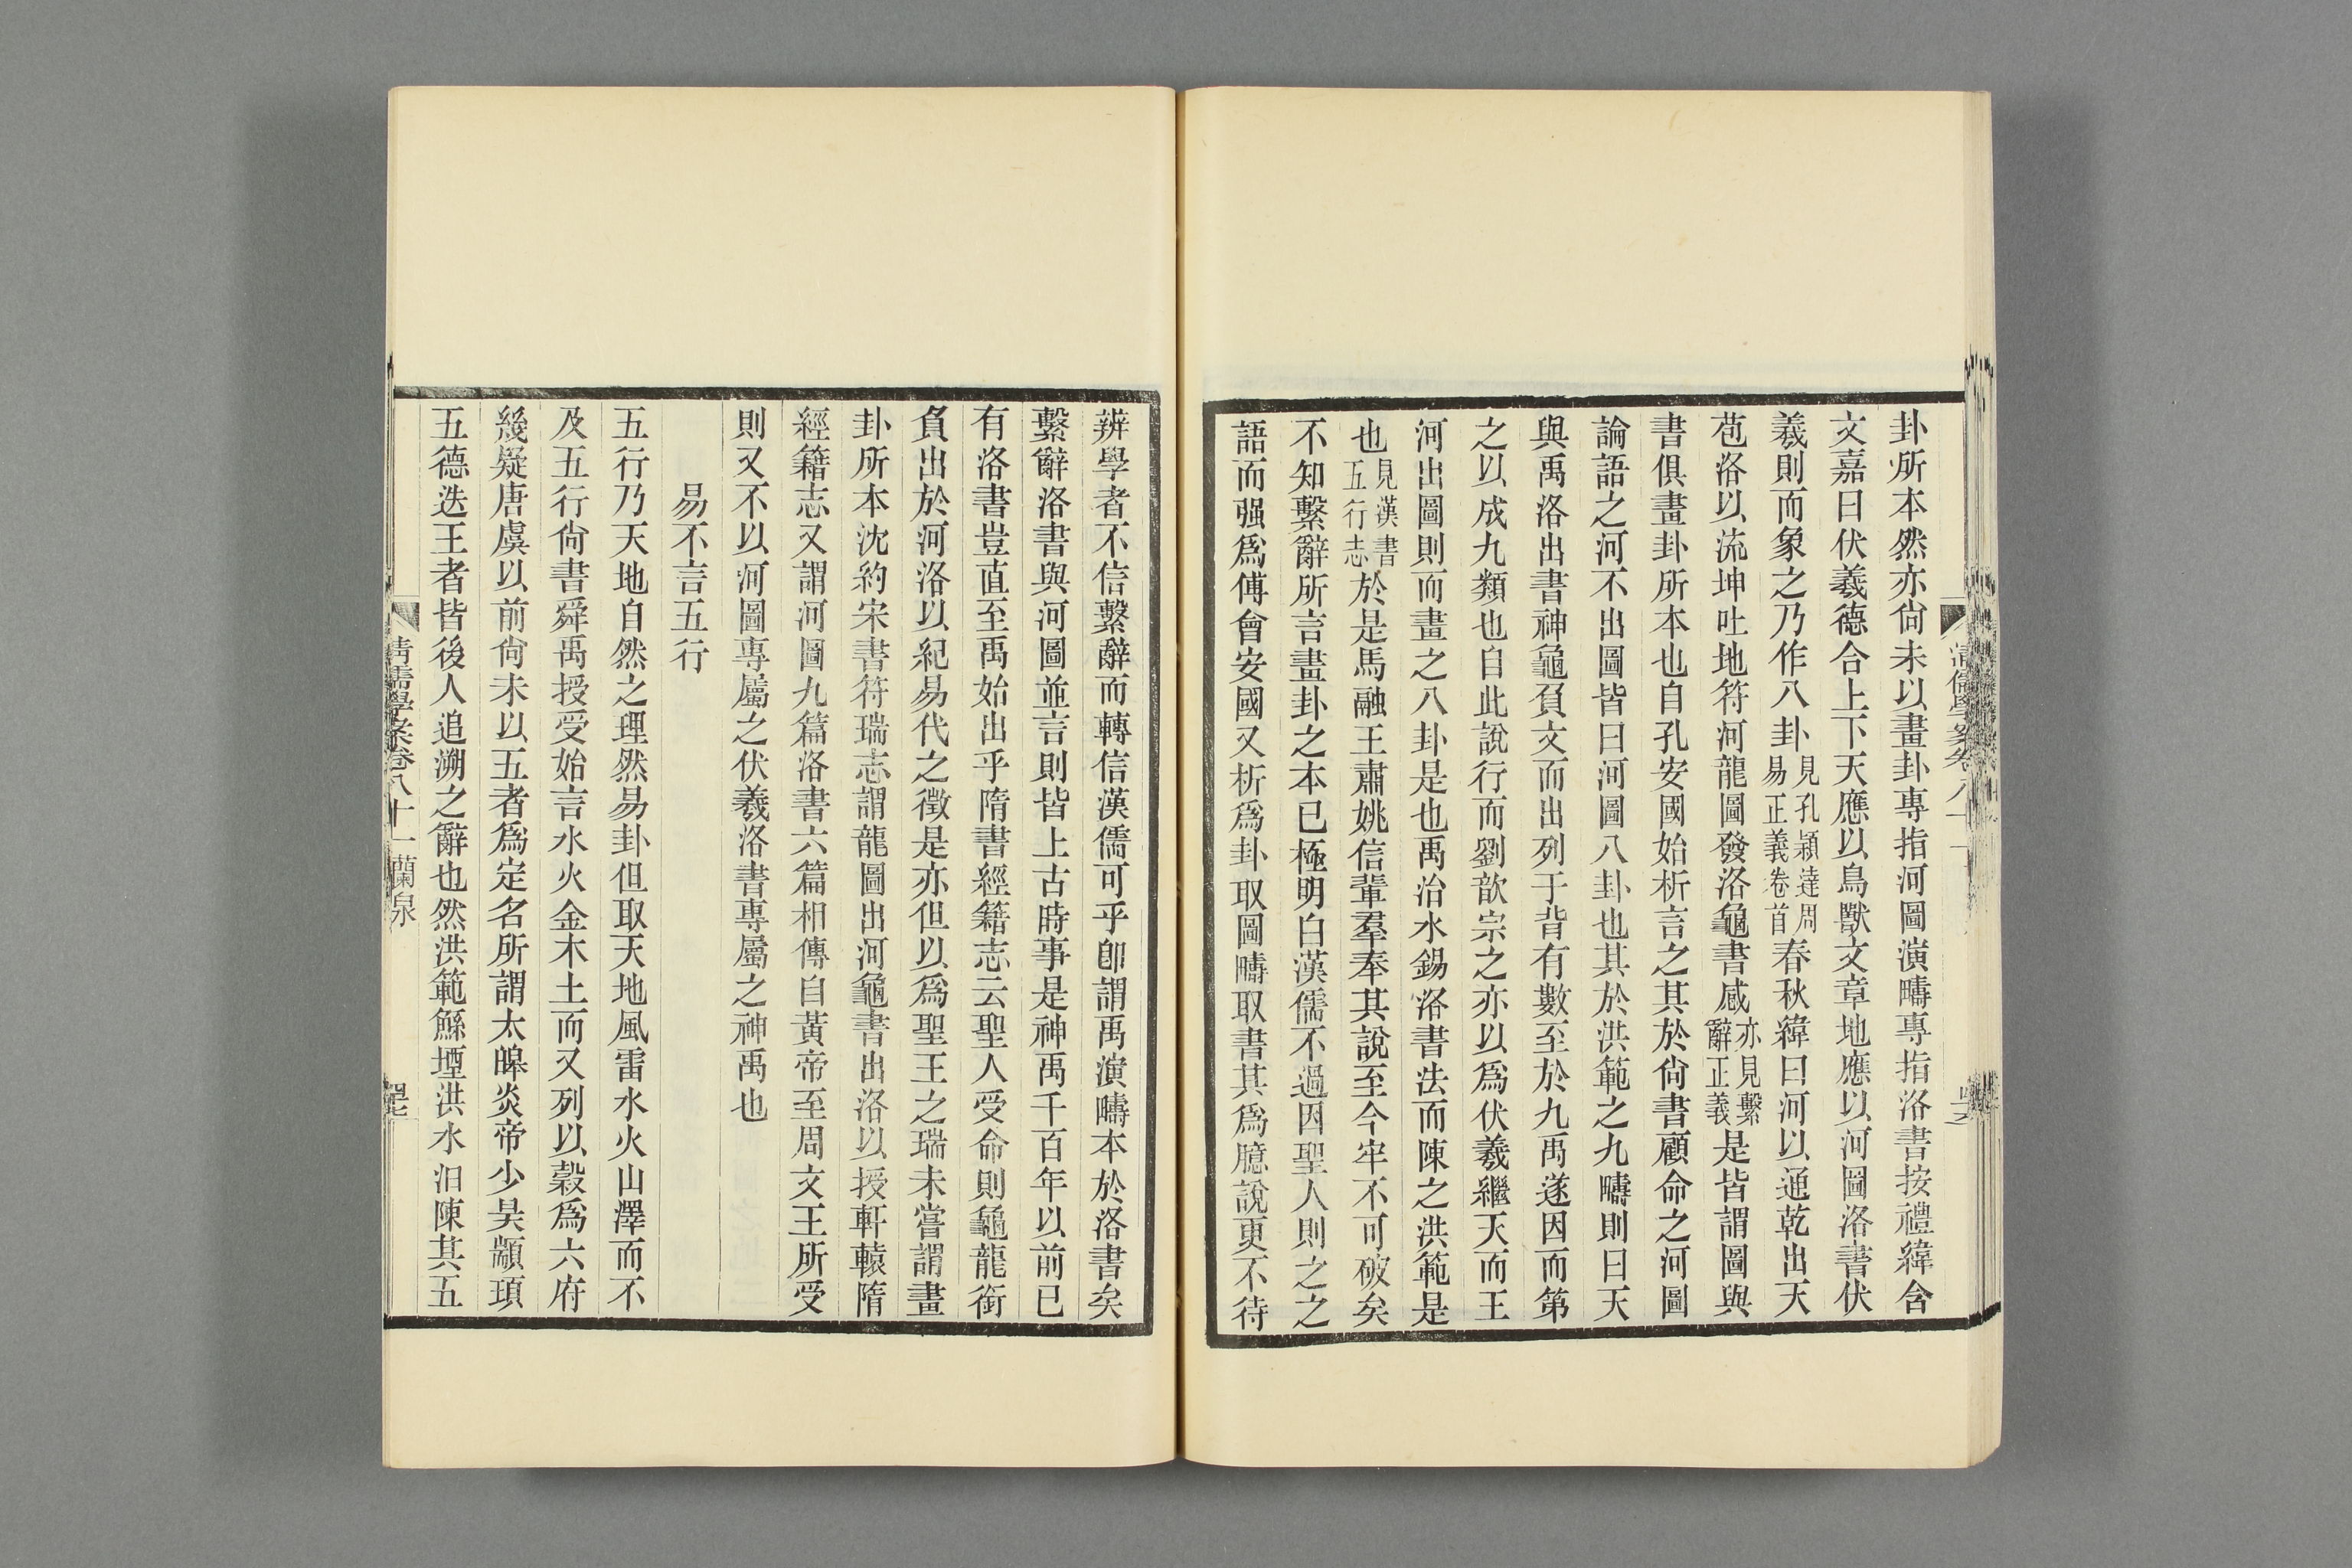 卦所本然亦尙未以畫卦專指河圖演疇專指洛書按禮緯含
文嘉曰伏羲德合上下天應以鳥獸文章地應以河圖洛書伏
羲則而象之乃作八卦見孔穎達周易正義卷首春秋緯曰河以通乾出天
苞洛以流坤吐地符河龍圖發洛龜書感亦見繫辭正義是皆謂圖與
書俱畫卦所本也自孔安國始析言之其於尙書顧命之河圖
論語之河不出圖皆曰河圖八卦也其於洪範之九疇則曰天
與禹洛出書神龜負文而出列于背有數至於九禹遂因而第
之以成九類也自此說行而劉歆宗之亦以爲伏羲繼天而王
河出圖則而畫之八卦是也禹治水錫洛書法而陳之洪範是
也見漢書五行志於是馬融王肅姚信輩羣奉其說至今牢不可破矣
不知繫辭所言畫卦之本已極明白漢儒不過因聖人則之之
語而强爲傅會安國又析爲卦取圖疇取書其爲臆說更不待
辨學者不信繫辭而轉信漢儒可乎卽謂禹演疇本於洛書矣
繫辭洛書與河圖並言則皆上古時事是神禹千百年以前已
有洛書豈直至禹始出乎隋書經籍志云聖人受命則龜龍銜
負出於河洛以紀易代之徵是亦但以爲聖王之瑞未嘗謂畫
卦所本沈約宋書符瑞志謂龍圖出河龜書出洛以授軒轅隋
經籍志又謂河圖九篇洛書六篇相傳自黃帝至周文王所受
則又不以河圖專屬之伏羲洛書專屬之神禹也
易不言五行
五行乃天地自然之理然易卦但取天地風雷水火山澤而不
及五行尙書舜禹授受始言水火金木土而又列以穀爲六府
幾疑唐虞以前尙未以五者爲定名所謂太皞炎帝少昊顓頊
五德迭王者皆後人追溯之辭也然洪範鯀堙洪水汨陳其五
清儒學案卷八十一 蘭泉